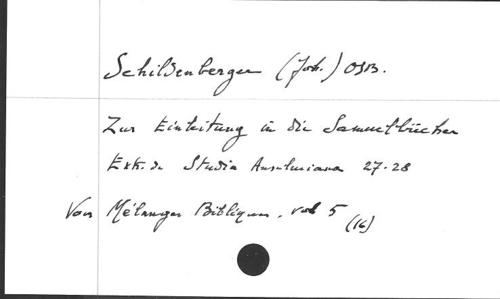 Schildenberger (Joh.) OSB.
Zur Einleitung in die Samuelbücher
Extr. de Studia Anselmiana 27-28
Voir Mélanges Bibliques, vol 5
(16)